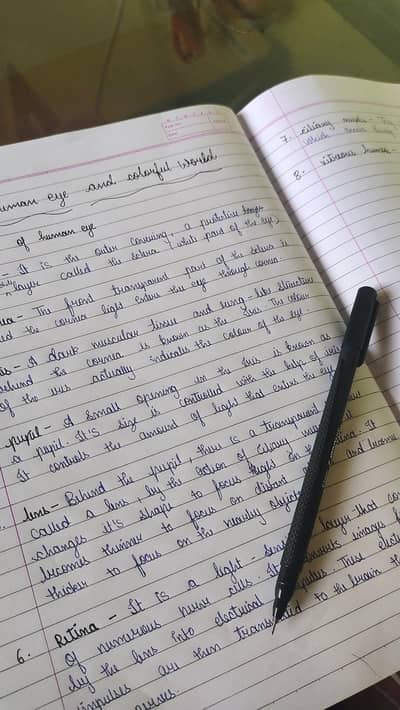 human eye and colorful world
of human eye
- It is the outer covering, a protective tough
layer called the sclera (white part of the eye)
- The front transparent part of the sclera is
the cornea light enters the eye through cornea.
- A dark muscular tissue and ring-like structure
behind the cornea is known as the iris. The colour
of the iris actually indicate the colour of the eye.
pupil - A small opening in the iris is known as
a pupil. It's size is controlled with the help of
It controls the amount of light that enters the eye
lens - Behind the pupil, there is a transparent
called a lens, by the action of ciliary
changes it's shape to focus light on the retina. It
becomes thinner to focus on distant and becomes
thicker to focus on the nearby objects
6. Retina - It is a light-
of numerous nerve cells. It converts images
by the lens into electrical impulses. These
impulses are then to the brain
nerves.
7. ciliary
which
8. vitreous humor -